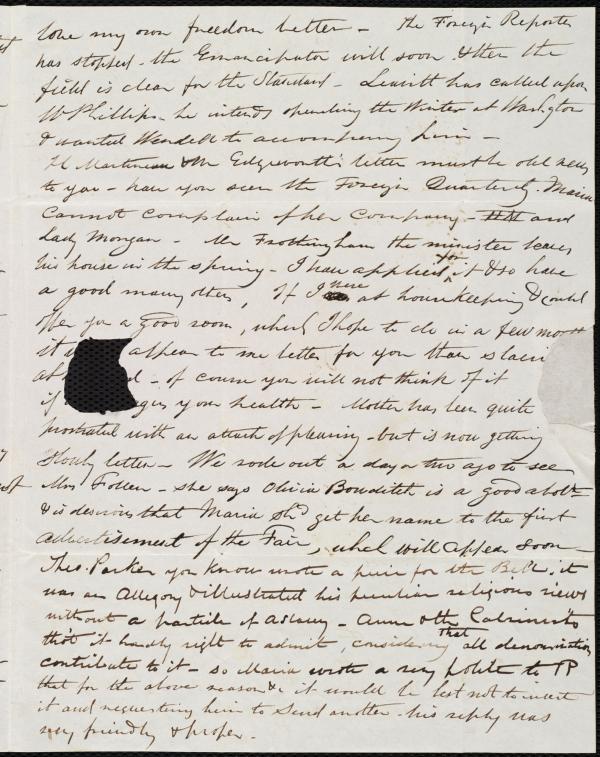 love my own freedom better - the Foreign Reporter
has stopped - the Emancipator will soon & then the
field is clear for the Standard - Leavitt has called upon
W Phillips - he intends spending the Winter at Washgton
& wanted Wendell to accompany him -
H Martineau & Mr Edgeworth's letter must be old news
to you - have you seen the Foreign Quarterly. Maria
cannot complain of her company - and
Lady Morgan - Mr Frothingham the minister leaves
his house in the spring - I have applied for it & so have
a good many others, If I were at housekeeping & could
offer you a good room, which I hope to do in a few month
it appear to me better for you than
of course you will not think of it
if your health - Mother has been quite
prostrated with an attack of pleurisy - but is now getting
slowly better - We rode out a day or two ago to see
Mrs Follen - she says Olivia Bowditch is a good abolt
& is desirous that Maria shd get her name to the first
advertisement of the Fair, which will appear soon -
Theo. Parker you know wrote a piece for the Bell, it
was an Allegory & illustrated his peculiar religious views
without a particle of Aslavery - Anne & the Calvinists
tho't it hardly right to admit, considering that all denominations
contribute to it - so Maria wrote a very polite to TP
that for the above reason &c it would be best not to insert
it and requesting him to send another - his reply was
very friendly & proper -